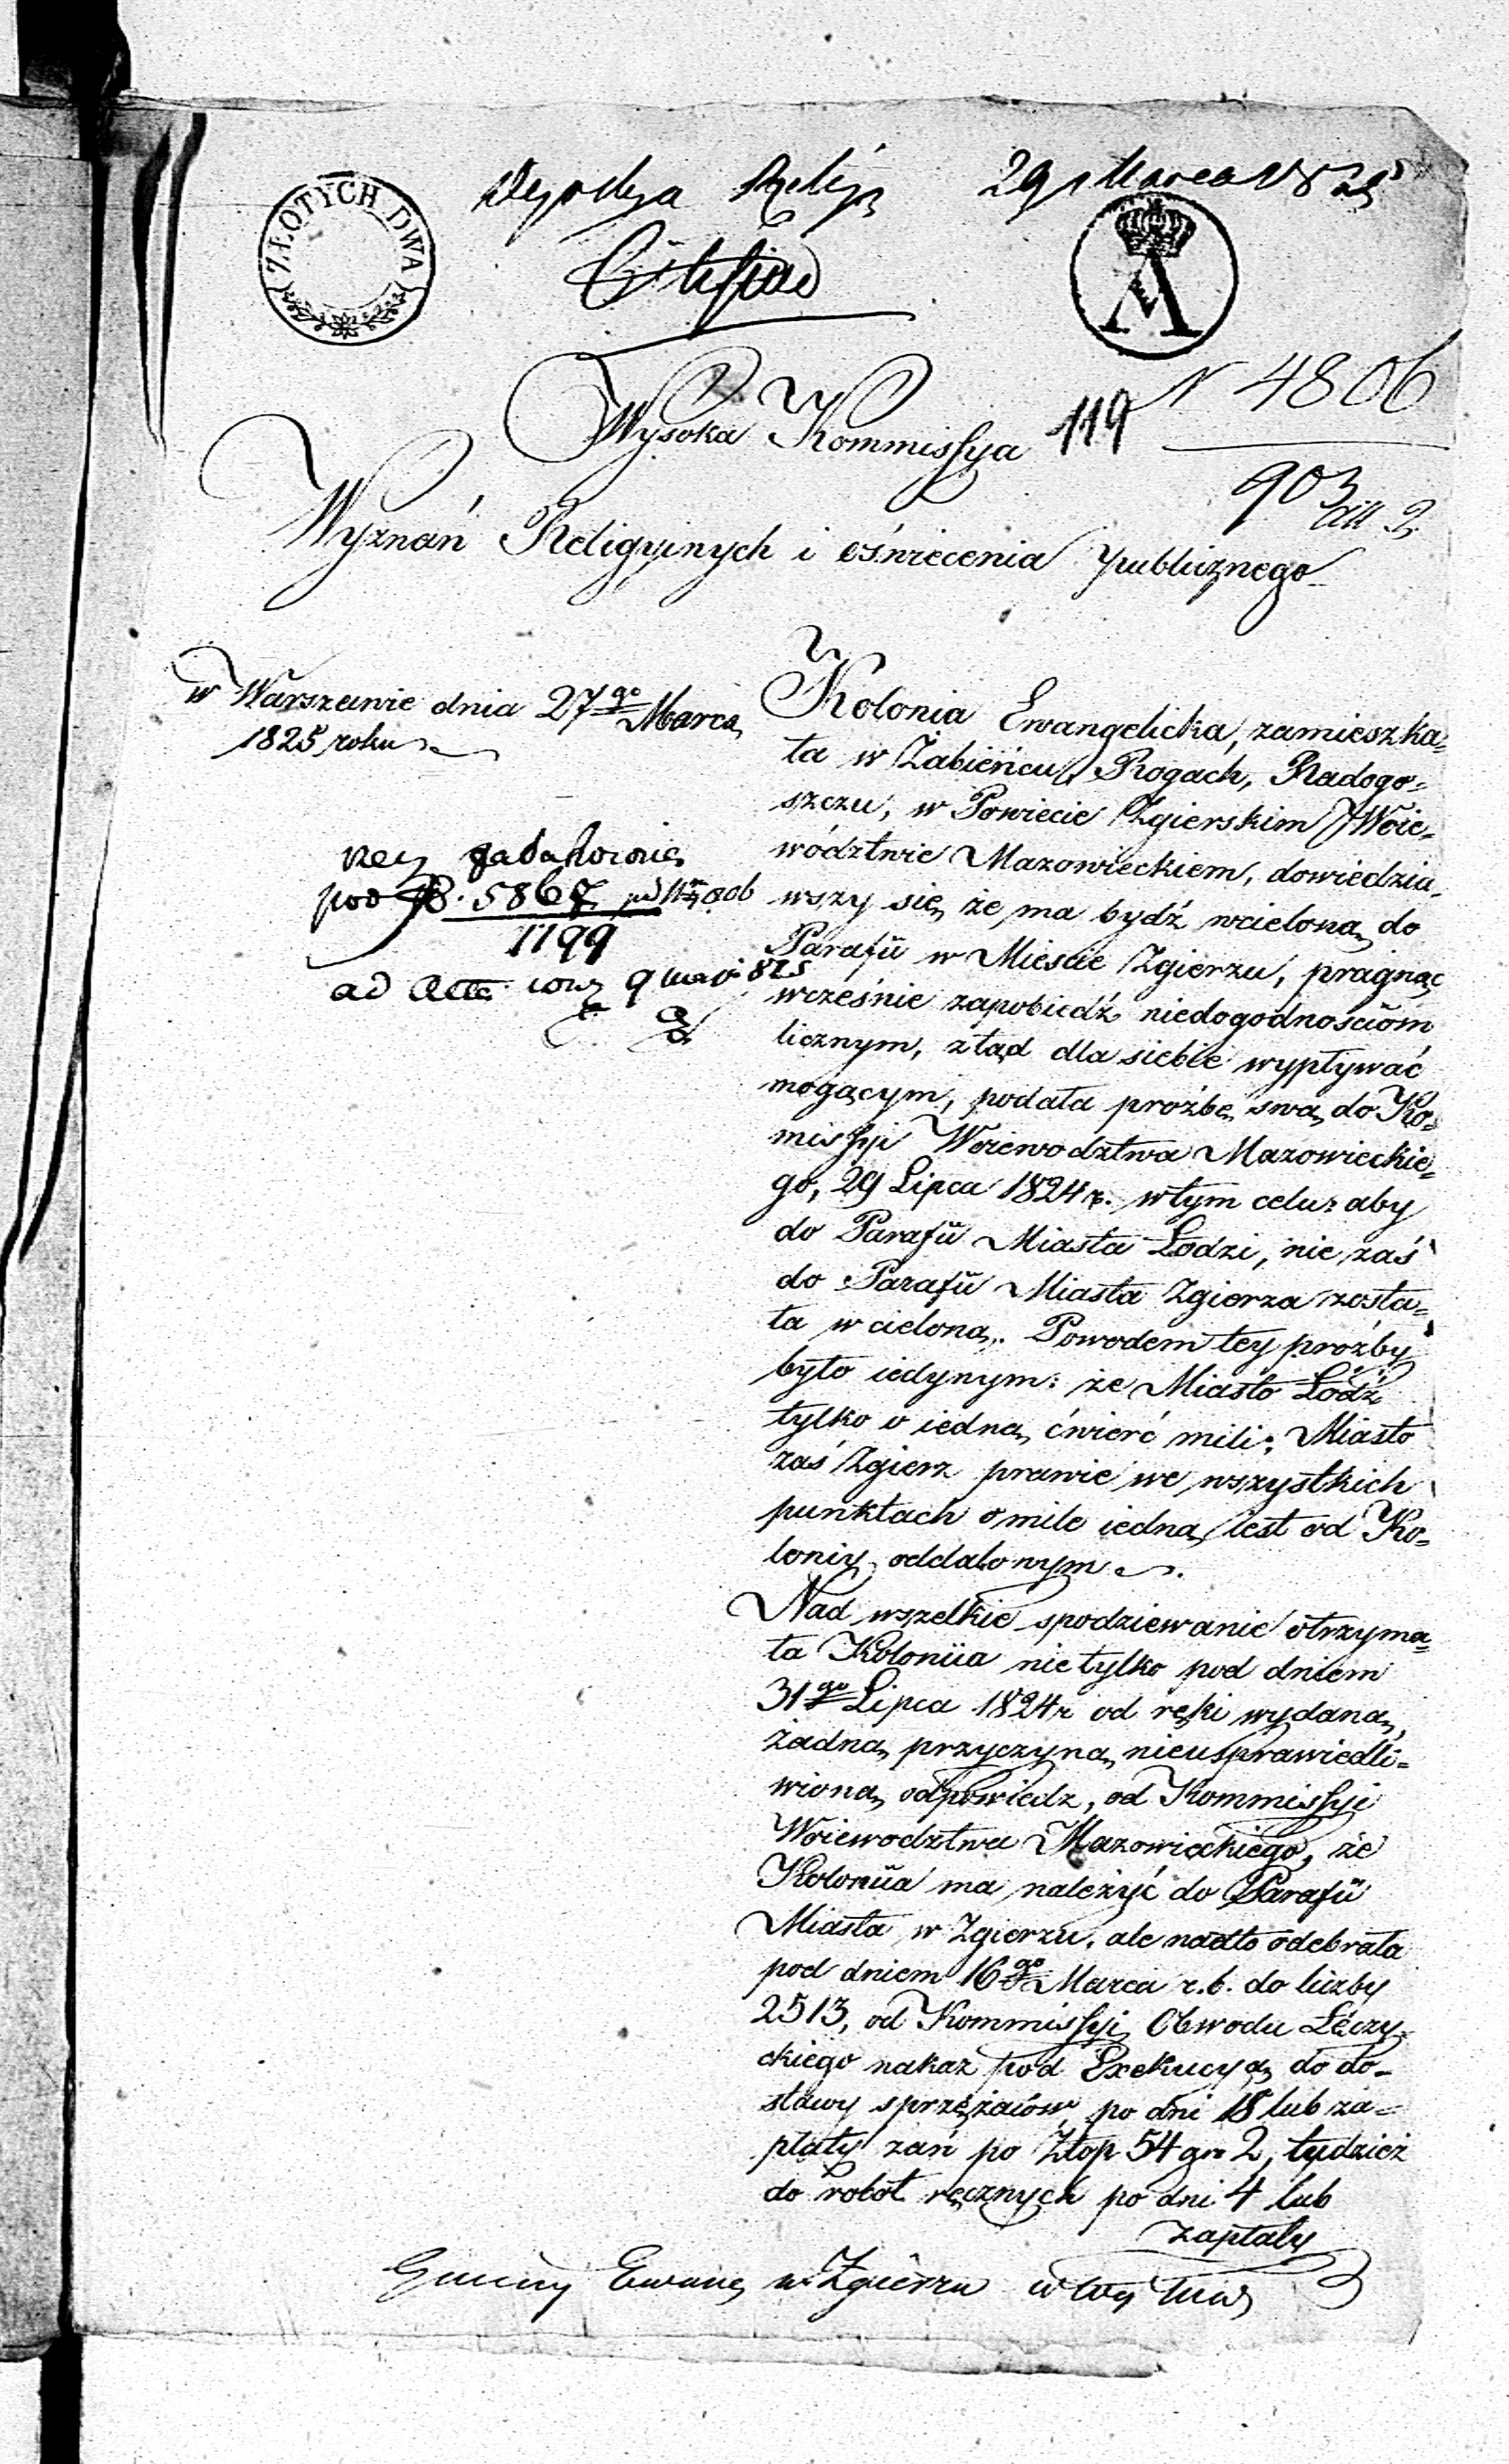 29 Marca 1825
ZŁOTYCH DWA
N 4806
Wysoka Kommissya 119
903
Wyznań Religyinych i oświecenia publicznego
w Warszawie dnia 27go Marca
1825 roku
Kolonia Ewangelicka, zamieszka=
ła w Żabieńcu, Rogach, Radogo=
szczu, w Powiecie Zgierskim Woie=
wództwie Mazowieckiem, dowiedzia=
wszy się, że ma bydź wcieloną do
Parafii w Mieście Zgierzu, pragnąc
wcześnie zapobiedź niedogodnościom
licznym, ztąd dla siebie wypływać
mogącym, podała proźbę swą do Ko=
missyi Woiewodztwa Mazowieckie=
go, 29 Lipca 1824 r. w tym celu: aby
do Parafii Miasta Łodzi, nie zaś
do Parafii Miasta Zgierza zosta=
ła wcieloną. Powodem tey proźby
było iedynym: że Miasto Łódź
tylko o iedną ćwierć mili; Miasto
zaś Zgierz prawie we wszystkich
punktach o mile iedną iest od Ko=
loniy oddalonym.
Nad wszelkie spodziewanie otrzyma=
ła Koloniia nie tylko pod dniem
31go Lipca 1824 r od ręki wydaną,
żadną przyczyną nieusprawiedli=
wioną odpowiedz, od Kommissyi
Woiewodztwa Mazowieckiego, że
Koloniia ma należyć do Parafii
Miasta w Zgierzu, ale nadto odebrała
pod dniem 16go Marca r.b. do liczby
2513, od Kommissyi Obwodu Łęczy=
ckiego nakaz pod Exekucyą do do=
stawy sprzężaiów po dni 18 lub za=
płaty zań po Złop 54 gr 2, tydzież
do robót ręcznych po dni 4 lub
zapłaty
pod 5867
1199
ad Acta
Gminy Ewang w Zgierzu